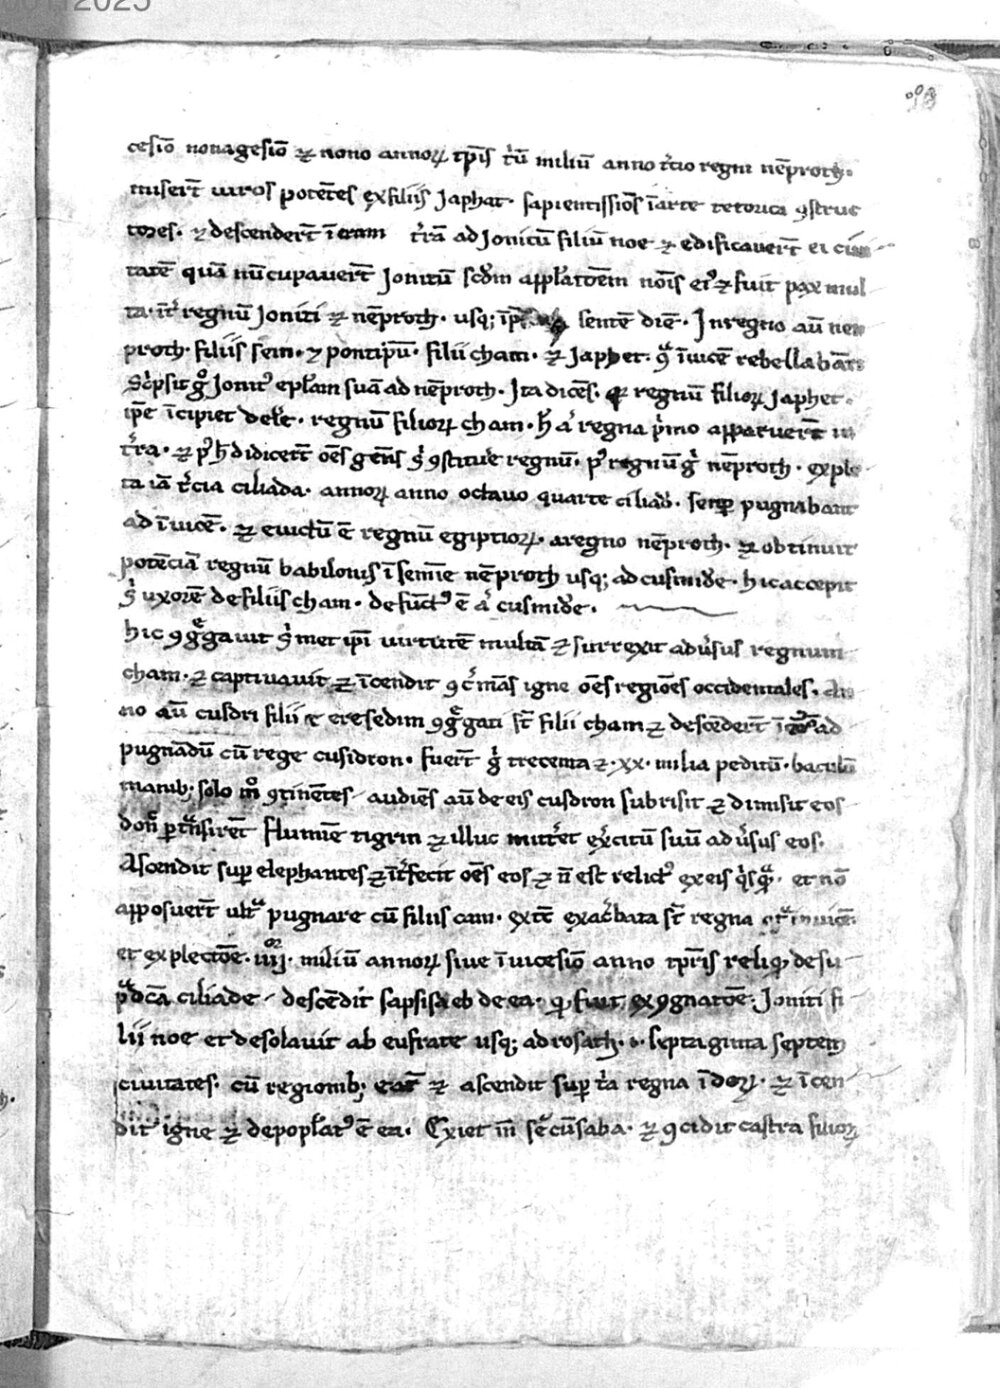 cesiō nonagesiō ⁊ nono annoꝝ tp̄is t'ū miliū anno t'cio regni nēproth·
misert̄ uiros potētes ex filiis Japhat· sapientissiōs īarte tetorica ꝯstruc
tores· ⁊ descendert̄ ī eram t'rā ad Jonicū filiū noe ⁊ edificavert̄ ei ciui
tatē quā nūcupavert̄ Jonitū scd̄m appl'atōem nōis ei' ⁊ fuit pax mul
ta· īt' regnū Joniti ⁊ nēproth· usq; sentē diē· In regno aū nen
proth· filiis sem· ⁊ pontipū· filii cham· ⁊ Japhet· īuicē rebellabāt
Sc'psit gͦ Jonit' epl'am suā ad nēproth· Ita dicēs· regnū filioꝝ Japhet·
ip̄e īcipiet del'e· regnū filioꝝ cham· h' a' regna p'mo apparuert̄ in
t'ra· ⁊ p' h̄ didicert̄ oēs gētēs s' ꝯstitu'e regnū· p' regnū g' nēproth· exple
ta iā t'cia ciliada· annoꝝ anno octavo quarte ciliad'· semꝑ pugnabant
ad īuicē· ⁊ euictū ē regnū egiptioꝝ· aregno nēproth· ⁊ obtinuit
potēciā regnū babilonis ī semīe nēproth usq; ad cusmid'e· hic accepit
s' uxorē de filiis cham· defūct' ē a' cusmid'e·
hic ꝯg'gauit s'met ip̄i uirtutē multā ⁊ surrexit aduͥsus regnum
cham· ⁊ captiuauit ⁊ īcendit ꝯc'mās igne oēs regiōes occidentales· An
no aū cusdri filii eresedim ꝯg'gati st̄ filii cham ⁊ descēdert̄ ad
pugnādū cū rege cusidron· fuert̄ g' trecenta ⁊ ·xx· milia peditū· baculū
manib; solo mͦ ꝯtinētes audiēs aū de eis cusdron subrisit ⁊ dimisit eos
don' ꝑtnsirēt flumīe tigrin ⁊ illuc mitt'et ex'citū suū aduͥsus eos·
Ascendit suꝑ elephantes ⁊ īt'fecit oēs eos ⁊ n̄ est relict' ex eis q'sq· et nō
apposuert̄ ult' pugnare cū filiis cam· ex tc̄ exac'bata st̄ regna īuicē
et explectōe· iiij· miliū annoꝝ siue ī uicesiō anno tp̄ris reliq' de su
p'dcā ciliade descēdit sapsisa eb de ea· q' fuit ex ꝯgnatōe· Joniti fi
lii noe et desolauit ab eufrate usq; ad rosath· septaginta septem
ciuitates· cū regionib; eaꝝ ⁊ ascendit suꝑ t'a regna īdoꝝ· ⁊ īcen
dit igne ⁊ depopl'at' ē ea· Exiet in secūsaba· ⁊ ꝯcidit castra filioꝝ